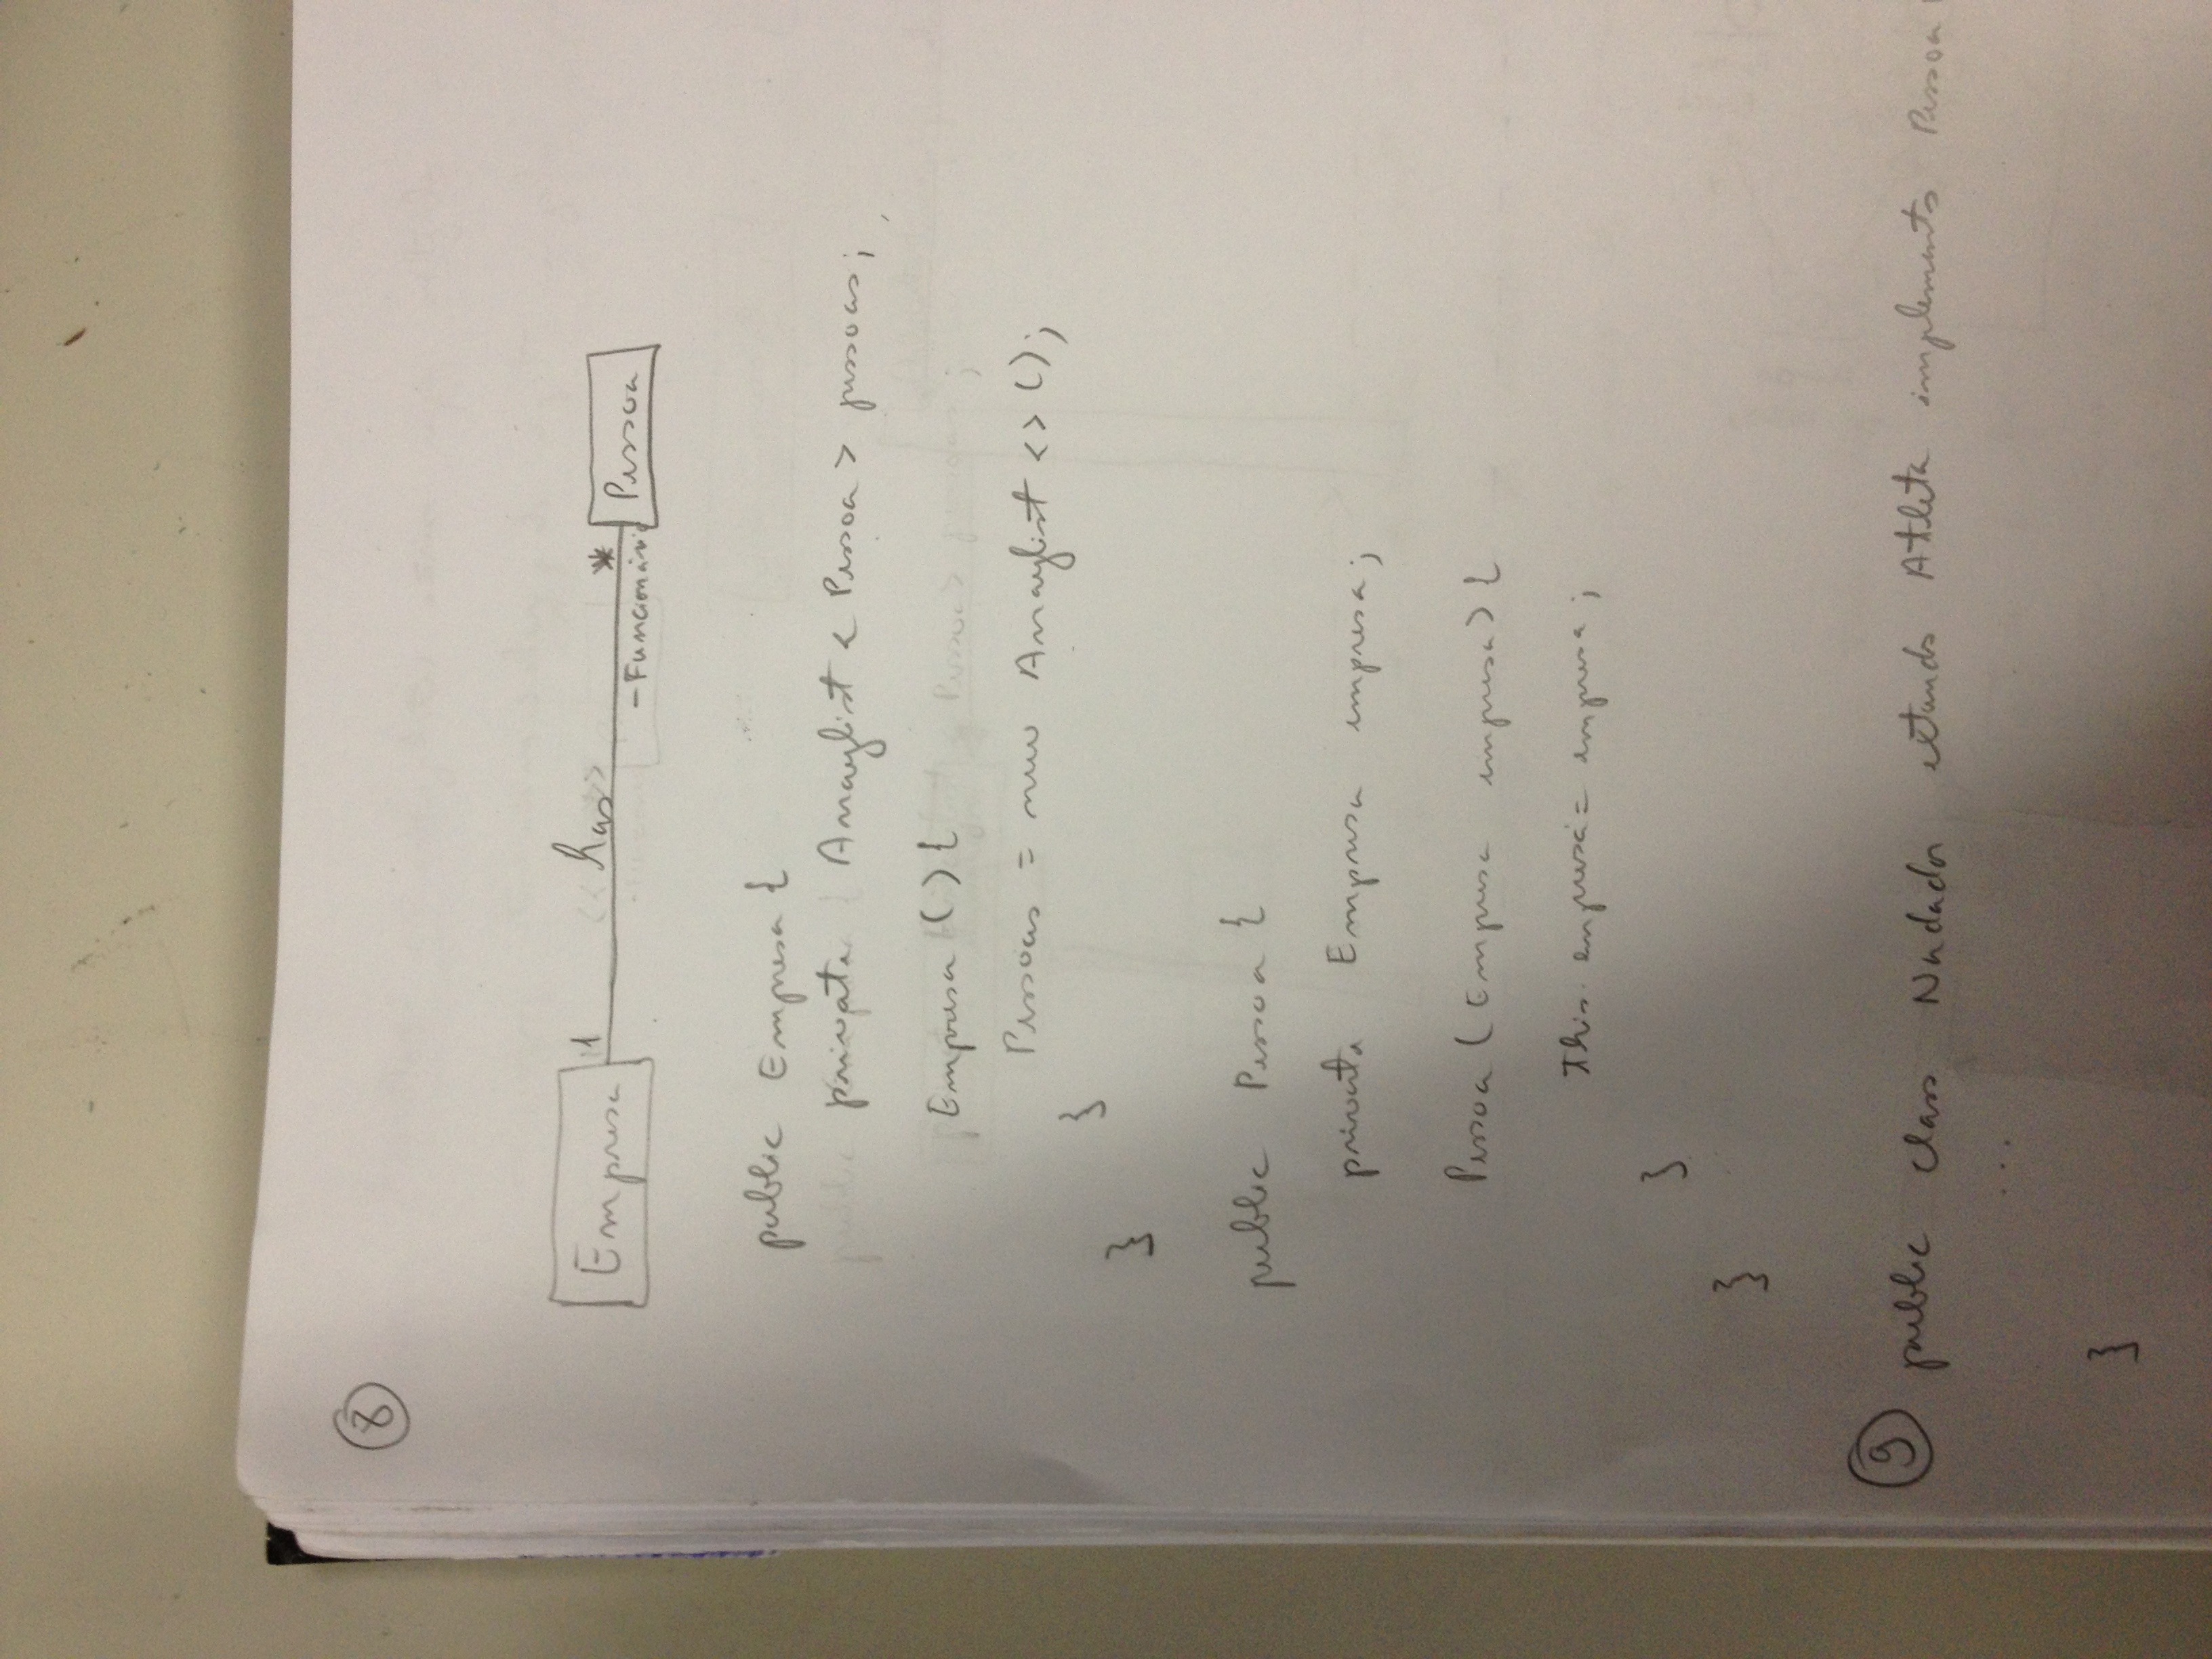 8
Empresa 1 has * Pessoa
-Funcionário
public Empresa {
private Arraylist < Pessoa > pessoas;
Empresa () {
Pessoas = new Arraylist <> ();
}
}
public Pessoa {
private Empresa empresa;
Pessoa ( Empresa empresa) {
this. empresa = empresa ;
}
}
9 public class Nadador extends Atleta implements Pessoa {
...
}